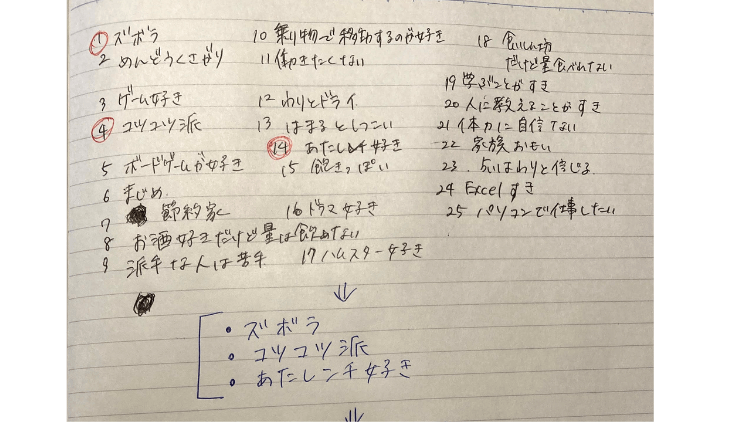 1 ズボラ
2 めんどうくさがり
3 ゲーム好き
4 コツコツ派
5 ボードゲームが好き
6 まじめ
7 節約家
8 お酒好きだけど量は飲めない
9 派手な人は苦手
10 乗り物で移動するのが好き
11 働きたくない
12 わりとドライ
13 はまるとしつこい
14 あたしンチ好き
15 飽きっぽい
16 ドラマ好き
17 ハムスター好き
18 食いしん坊
だけど量食べれない
19 学ぶことがすき
20 人に教えることがすき
21 体力に自信てない
22 家族おもい
23 占いはわりと信じる
24 Excelすき
25 パソコンで仕事したい
・ズボラ
・コツコツ派
・あたしンチ好き